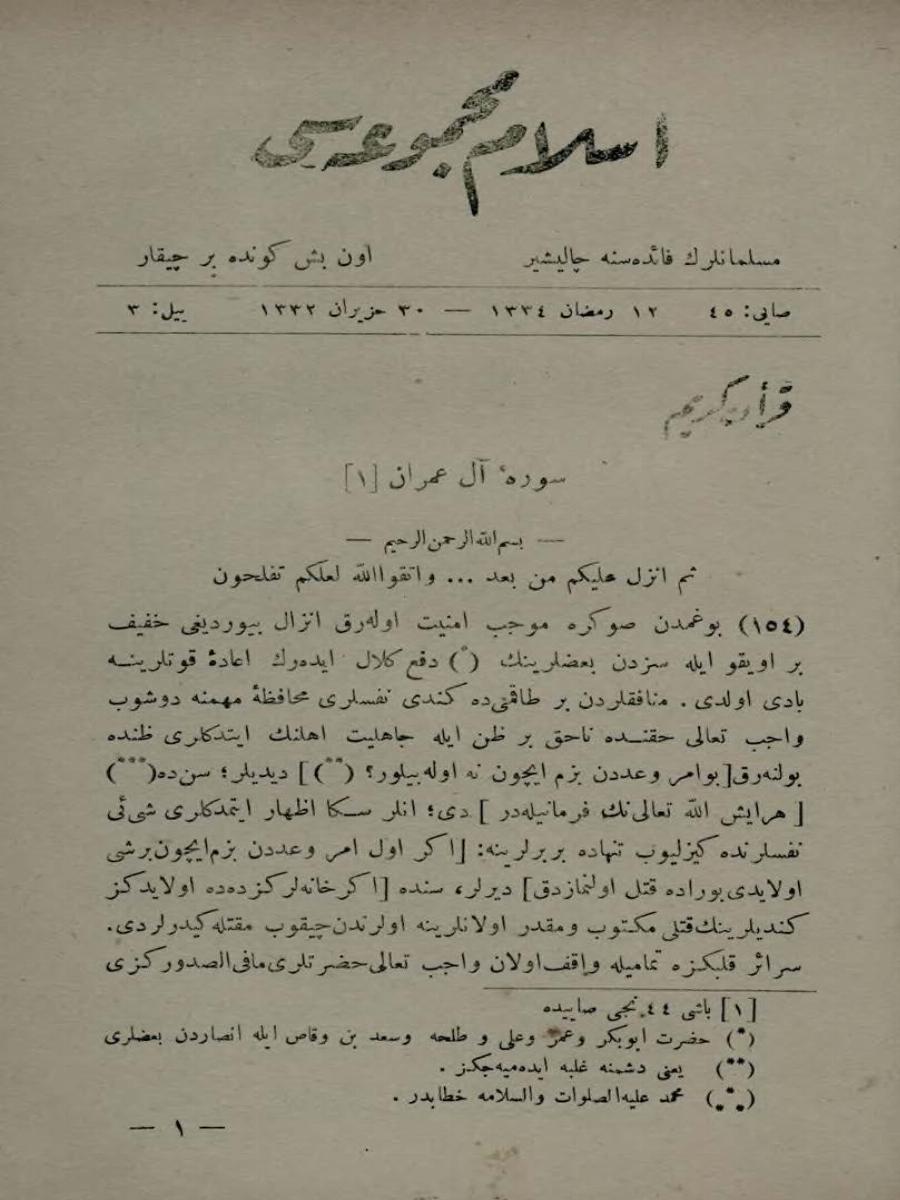 اسلام مجموعه‌سی
مسلمانلرك فائده‌سنه چالیشیر
اون بش كونده بر چیقار
صایی: ٤٥ ١٢ رمضان ١٣٣٤ — ٣٠ حزیران ١٣٣٢ ییل: ٣
قرأن كریم
سورهٔ آل عمران [١]
— بسم الله الرحمن الرحیم —
ثم انزل علیكم من بعد ... واتقوا الله لعلكم تفلحون
(١٥٤) بوغمدن صوكره موجب امنیت اوله‌رق انزال بیوردیغی خفیف
بر اویقو ایله سزدن بعضلرینك (*) دفع كلال ایده‌رك اعادهٔ قوتلرینه
بادی اولدی . منافقلردن بر طاقمی‌ده كندی نفسلری محافظهٔ مهمنه دوشوب
واجب تعالی حقنده ناحق بر ظن ایله جاهلیت اهلنك ایتدكلری ظنده
بولنه‌رق [بوامر وعددن بزم ایچون نه اوله‌بیلور؟ (**)] دیدیلر؛ سن‌ده(***)
[ هرایش الله تعالی‌نك فرمانیله‌در ] دی؛ انلر سكا اظهار ایتمدكلری شیئی
نفسلرنده كیزلیوب تنهاده بربرلرینه: [اكر اول امر وعددن بزم‌ایچون‌برشی
اولایدی‌بوراده قتل اولنمازدق] دیرلر، سنده [اكرخانه‌لركزده‌ده اولایدكز
كندیلرینك‌قتلی مكتوب ومقدر اولانلرینه اولرندن‌چیقوب مقتله‌كیدرلردی.
سرائر قلبكزه تمامیله واقف‌اولان واجب تعالی‌حضرتلری‌مافی‌الصدوركزی
[١] باشی ٤٤ نجی صاییده
(*) حضرت ابوبكر وعمر وعلی و طلحه وسعد بن وقاص ایله انصاردن بعضلری
(**) یعنی دشمنه غلبه ایده‌میه‌جكز .
(***) محمد علیه‌الصلوات والسلامه خطابدر .
— ١ —